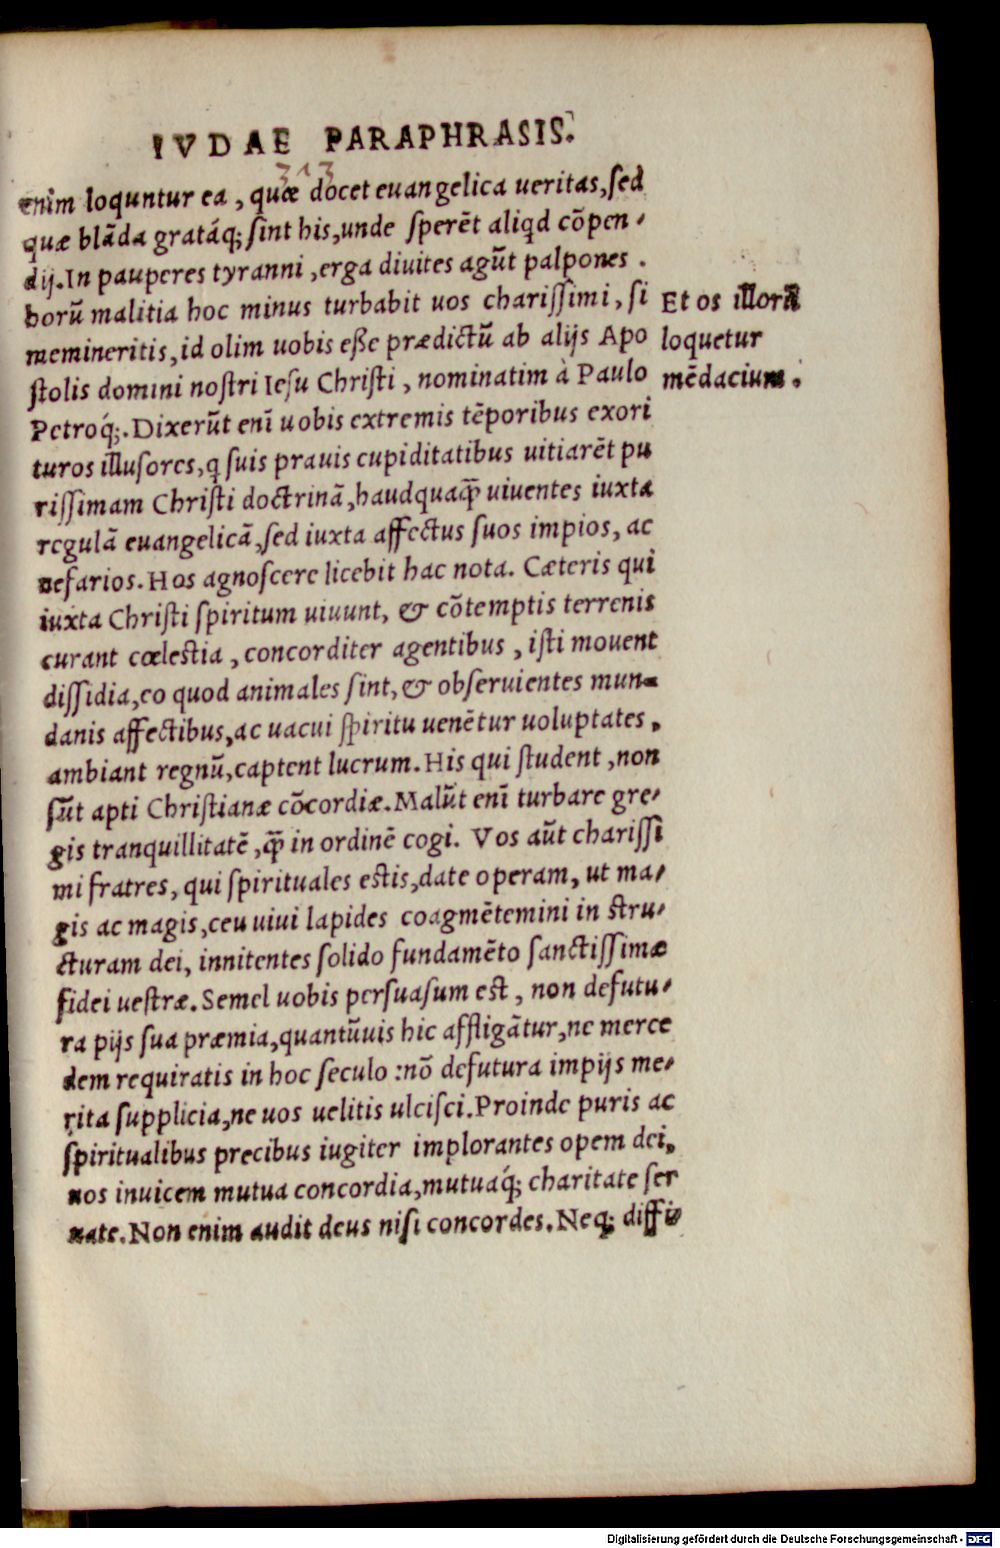 IVDAE PARAPHRASIS.
313
enim loquntur ea, quæ docet euangelica ueritas, sed
quæ blãda gratáq; sint his, unde sperẽt aliqd cõpen-
dij. In pauperes tyranni, erga diuites agũt palpones.
horũ malitia hoc minus turbabit uos charissimi, si
memineritis, id olim uobis esse prædictũ ab alijs Apo
stolis domini nostri Iesu Christi, nominatim à Paulo
Petroq́;. Dixerũt enĩ uobis extremis tẽporibus exori
turos illusores, q suis prauis cupiditatibus uitiarẽt pu
rissimam Christi doctrinã, haudquaq̃ uiuentes iuxta
regulã euangelicã, sed iuxta affectus suos impios, ac
nefarios. Hos agnoscere licebit hac nota. Cæteris qui
iuxta Christi spiritum uiuunt, & cõtemptis terrenis
curant cœlestia, concorditer agentibus, isti mouent
dissidia, eo quod animales sint, & obseruientes mun-
danis affectibus, ac uacui spiritu uenẽtur uoluptates,
ambiant regnũ, captent lucrum. His qui student, non
sũt apti Christianæ cõcordiæ. Malũt enĩ turbare gre-
gis tranquillitatẽ, q̃ in ordinẽ cogi. Vos aũt charissi
mi fratres, qui spirituales estis, date operam, ut ma-
gis ac magis, ceu uiui lapides coagmẽtemini in stru-
cturam dei, innitentes solido fundamẽto sanctissimæ
fidei uestræ. Semel uobis persuasum est, non defutu-
ra pijs sua præmia, quantũuis hic affligãtur, ne merce
dem requiratis in hoc seculo: nõ defutura impijs me-
rita supplicia, ne uos uelitis ulcisci. Proinde puris ac
spiritualibus precibus iugiter implorantes opem dei,
uos inuicem mutua concordia, mutuaq́; charitate ser
uate. Non enim audit deus nisi concordes. Neq; diffi-
Et os illorũ
loquetur
mẽdacium.
Digitalisierung gefördert durch die Deutsche Forschungsgemeinschaft - DFG